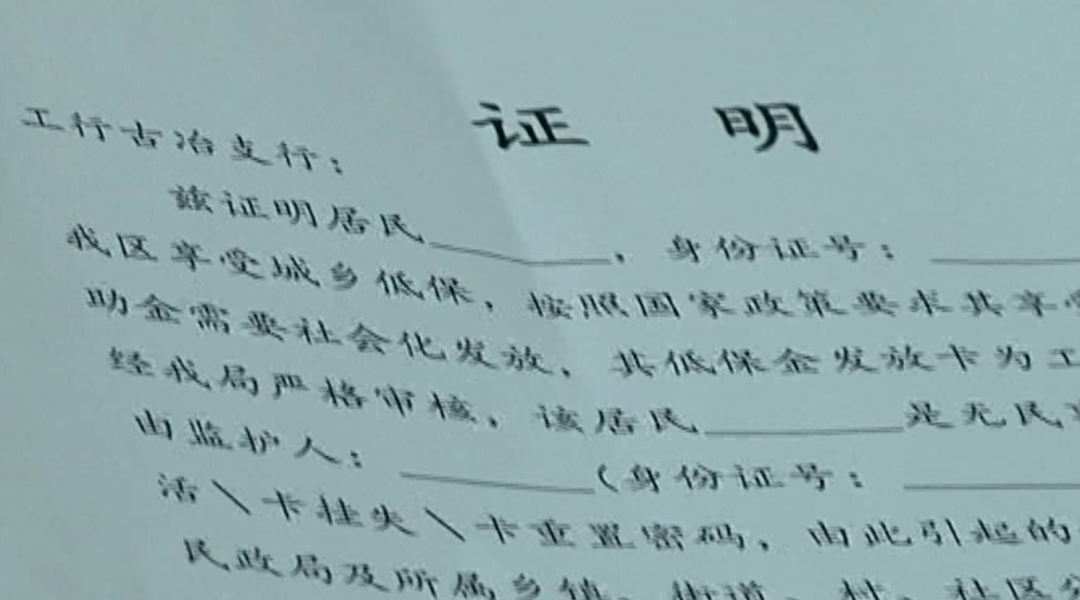 证 明
工行古冶支行：
兹证明居民______，身份证号：______
我区享受城乡低保，按照国家政策要求其享受
助金需要社会化发放，其低保金发放卡为工
经我局严格审核，该居民______是无民
由监护人：______（身份证号：______
活\卡挂失\卡重置密码，由此引起的
民政局及所属乡镇、街道、村、社区